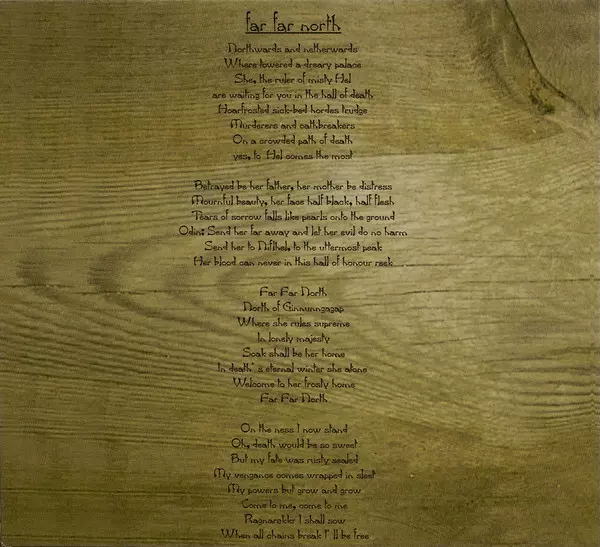 far far north
Northwards and netherwards
Where towered a dreary palace
She, the ruler of misty Hel
are waiting for you in the hall of death
Hoarfrosted sick-bed hordes trudge
Murderers and oathbreakers
On a crowded path of death
yes, to Hel comes the most
Betrayed be her father, her mother be distress
Mournful beauty, her face half black, half flesh
Tears of sorrow falls like pearls onto the ground
Odin: Send her far away and let her evil do no harm
Send her to Niflhel, to the uttermost peak
Her blood can never in this hall of honour reek
Far Far North
North of Ginnunngagap
Where she rules supreme
In lonely majesty
Soak shall be her home
In death's eternal winter she alone
Welcome to her frosty home
Far Far North
On the ness I now stand
Oh, death would be so sweet
But my fate was rusty sealed
My vengance comes wrapped in sleet
My powers but grow and grow
Come to me, come to me
Ragnarekkr I shall sow
When all chains break I'll be free